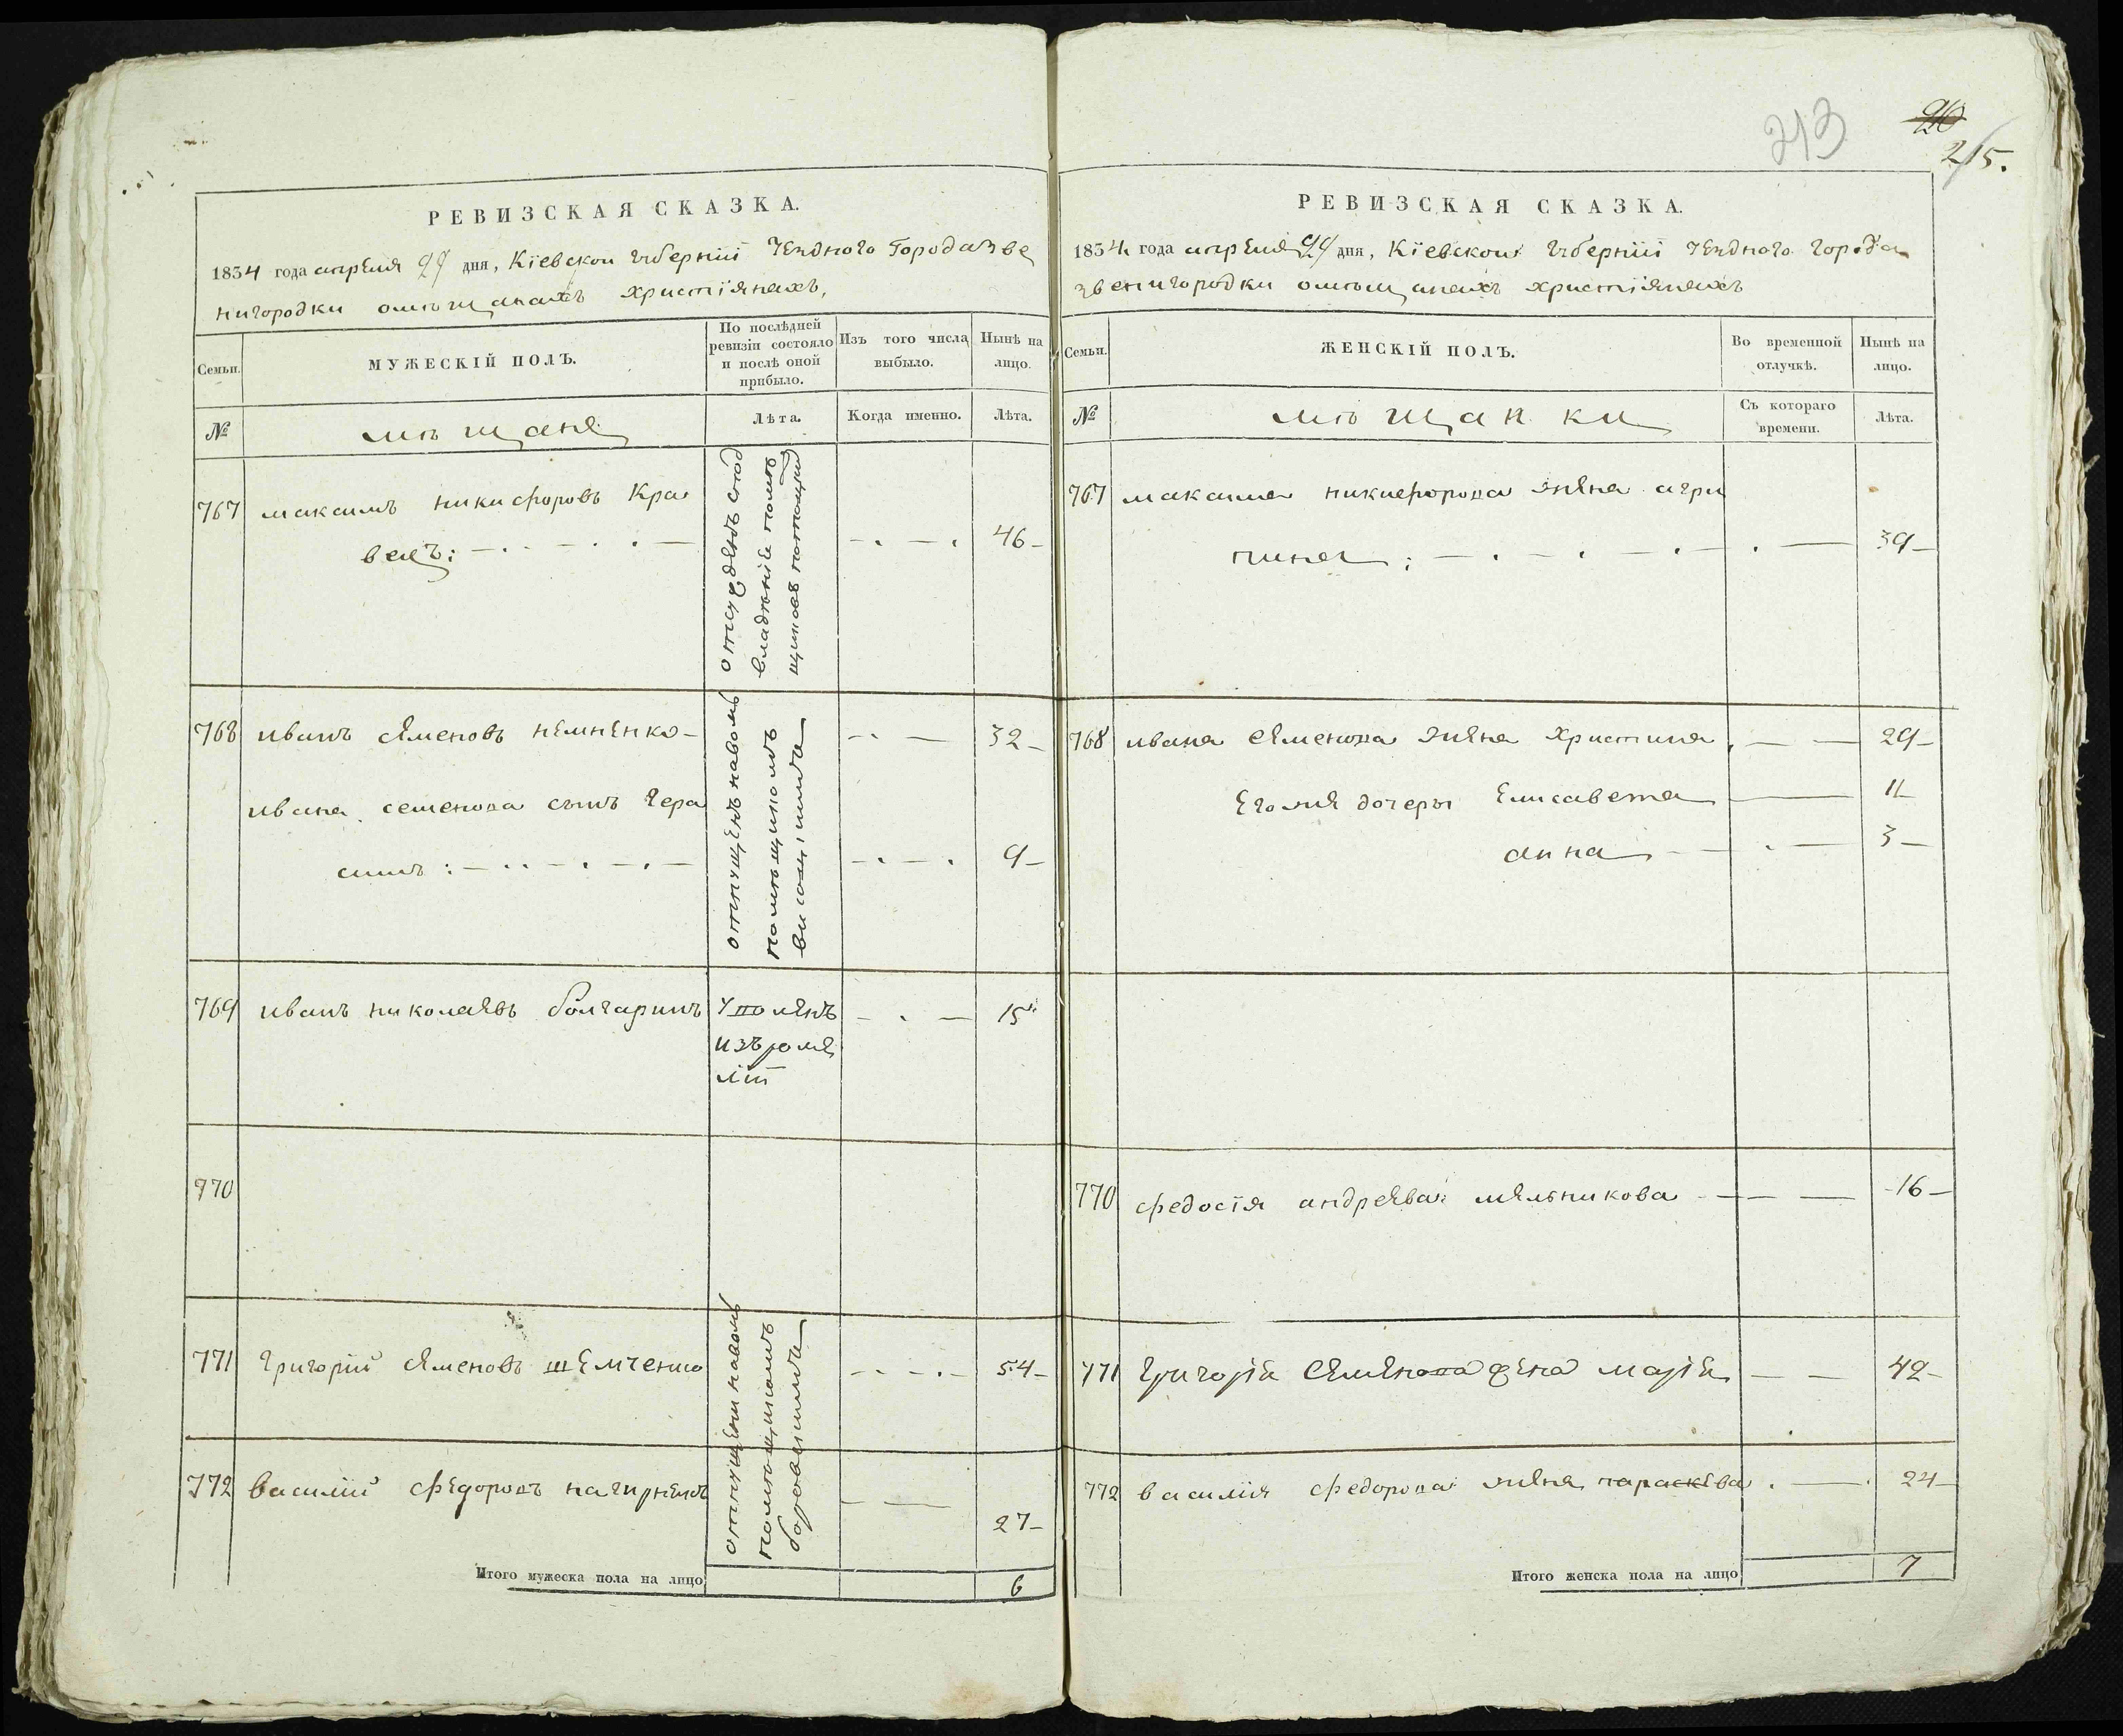 213
215.
РЕВИЗСКАЯ СКАЗКА.
1834 года апреля 29 дня, Кіевской губерніи уездного города зве
нигородки омѣщанахъ христіянахъ,
Семьи.
МУЖЕСКІЙ ПОЛЪ.
По послѣдней ревизіи состояло и послѣ оной прибыло.
Изъ того числа выбыло.
Нынѣ на лицо.
№
мѣщане
Лѣта.
Когда именно.
Лѣта.
767 максимъ никифоровъ Кра
вецъ: 46
отсуденъ
владѣніе помѣ
щиковъ
768 иванъ семеновъ немненко 32
ивана семенова сынъ гера
симъ: 9
отпущенъ
помѣщикомъ
769 иванъ николаевъ болгаринъ 15
изъ
770
771 григорій семеновъ шемченко 54
772 василій федоровъ 27
отпущени
помѣщикомъ
Итого мужеска пола на лицо 6
РЕВИЗСКАЯ СКАЗКА.
1834 года апреля 29 дня, Кіевской губерніи уездного города
звенигородки омѣщанахъ христіянахъ
Семьи.
ЖЕНСКІЙ ПОЛЪ.
Во временной отлучкѣ.
Нынѣ на лицо.
№
мѣщанки
Съ котораго времени.
Лѣта.
767 максима никифорова жена агри
пина: 39
768 ивана семенова жена христина 29
его же дочеры Елисавета 11
анна 3
770 федосія андреева мельникова 16
771 григорія семенова жена марія 42
772 василія федорова жена параскева 24
Итого женска пола на лицо 7